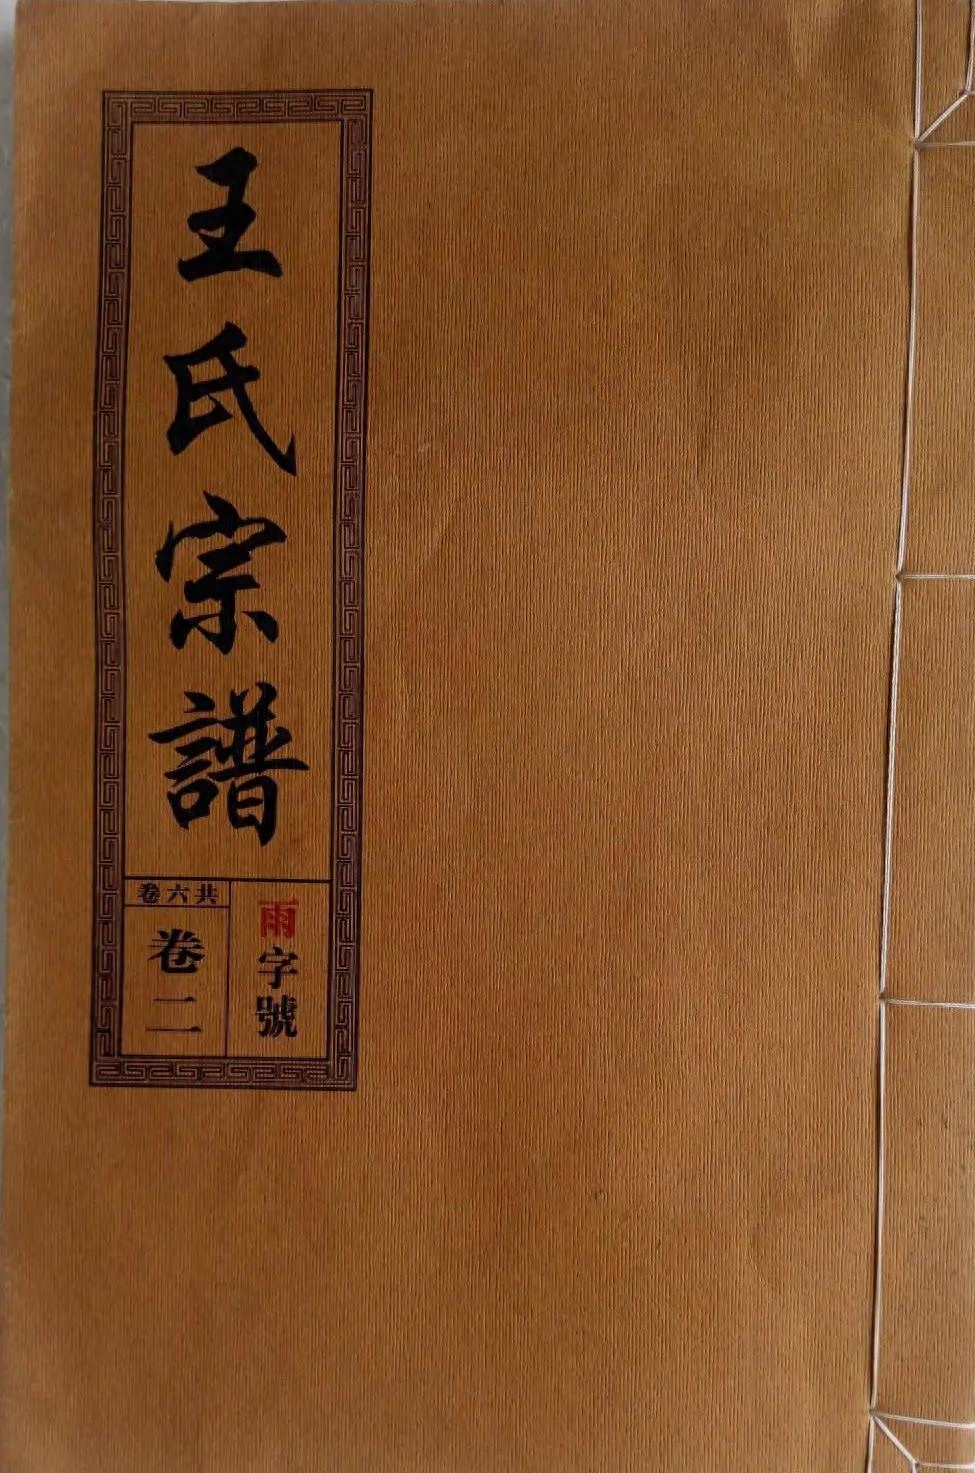 王氏宗譜
雨字號
共六卷
卷二